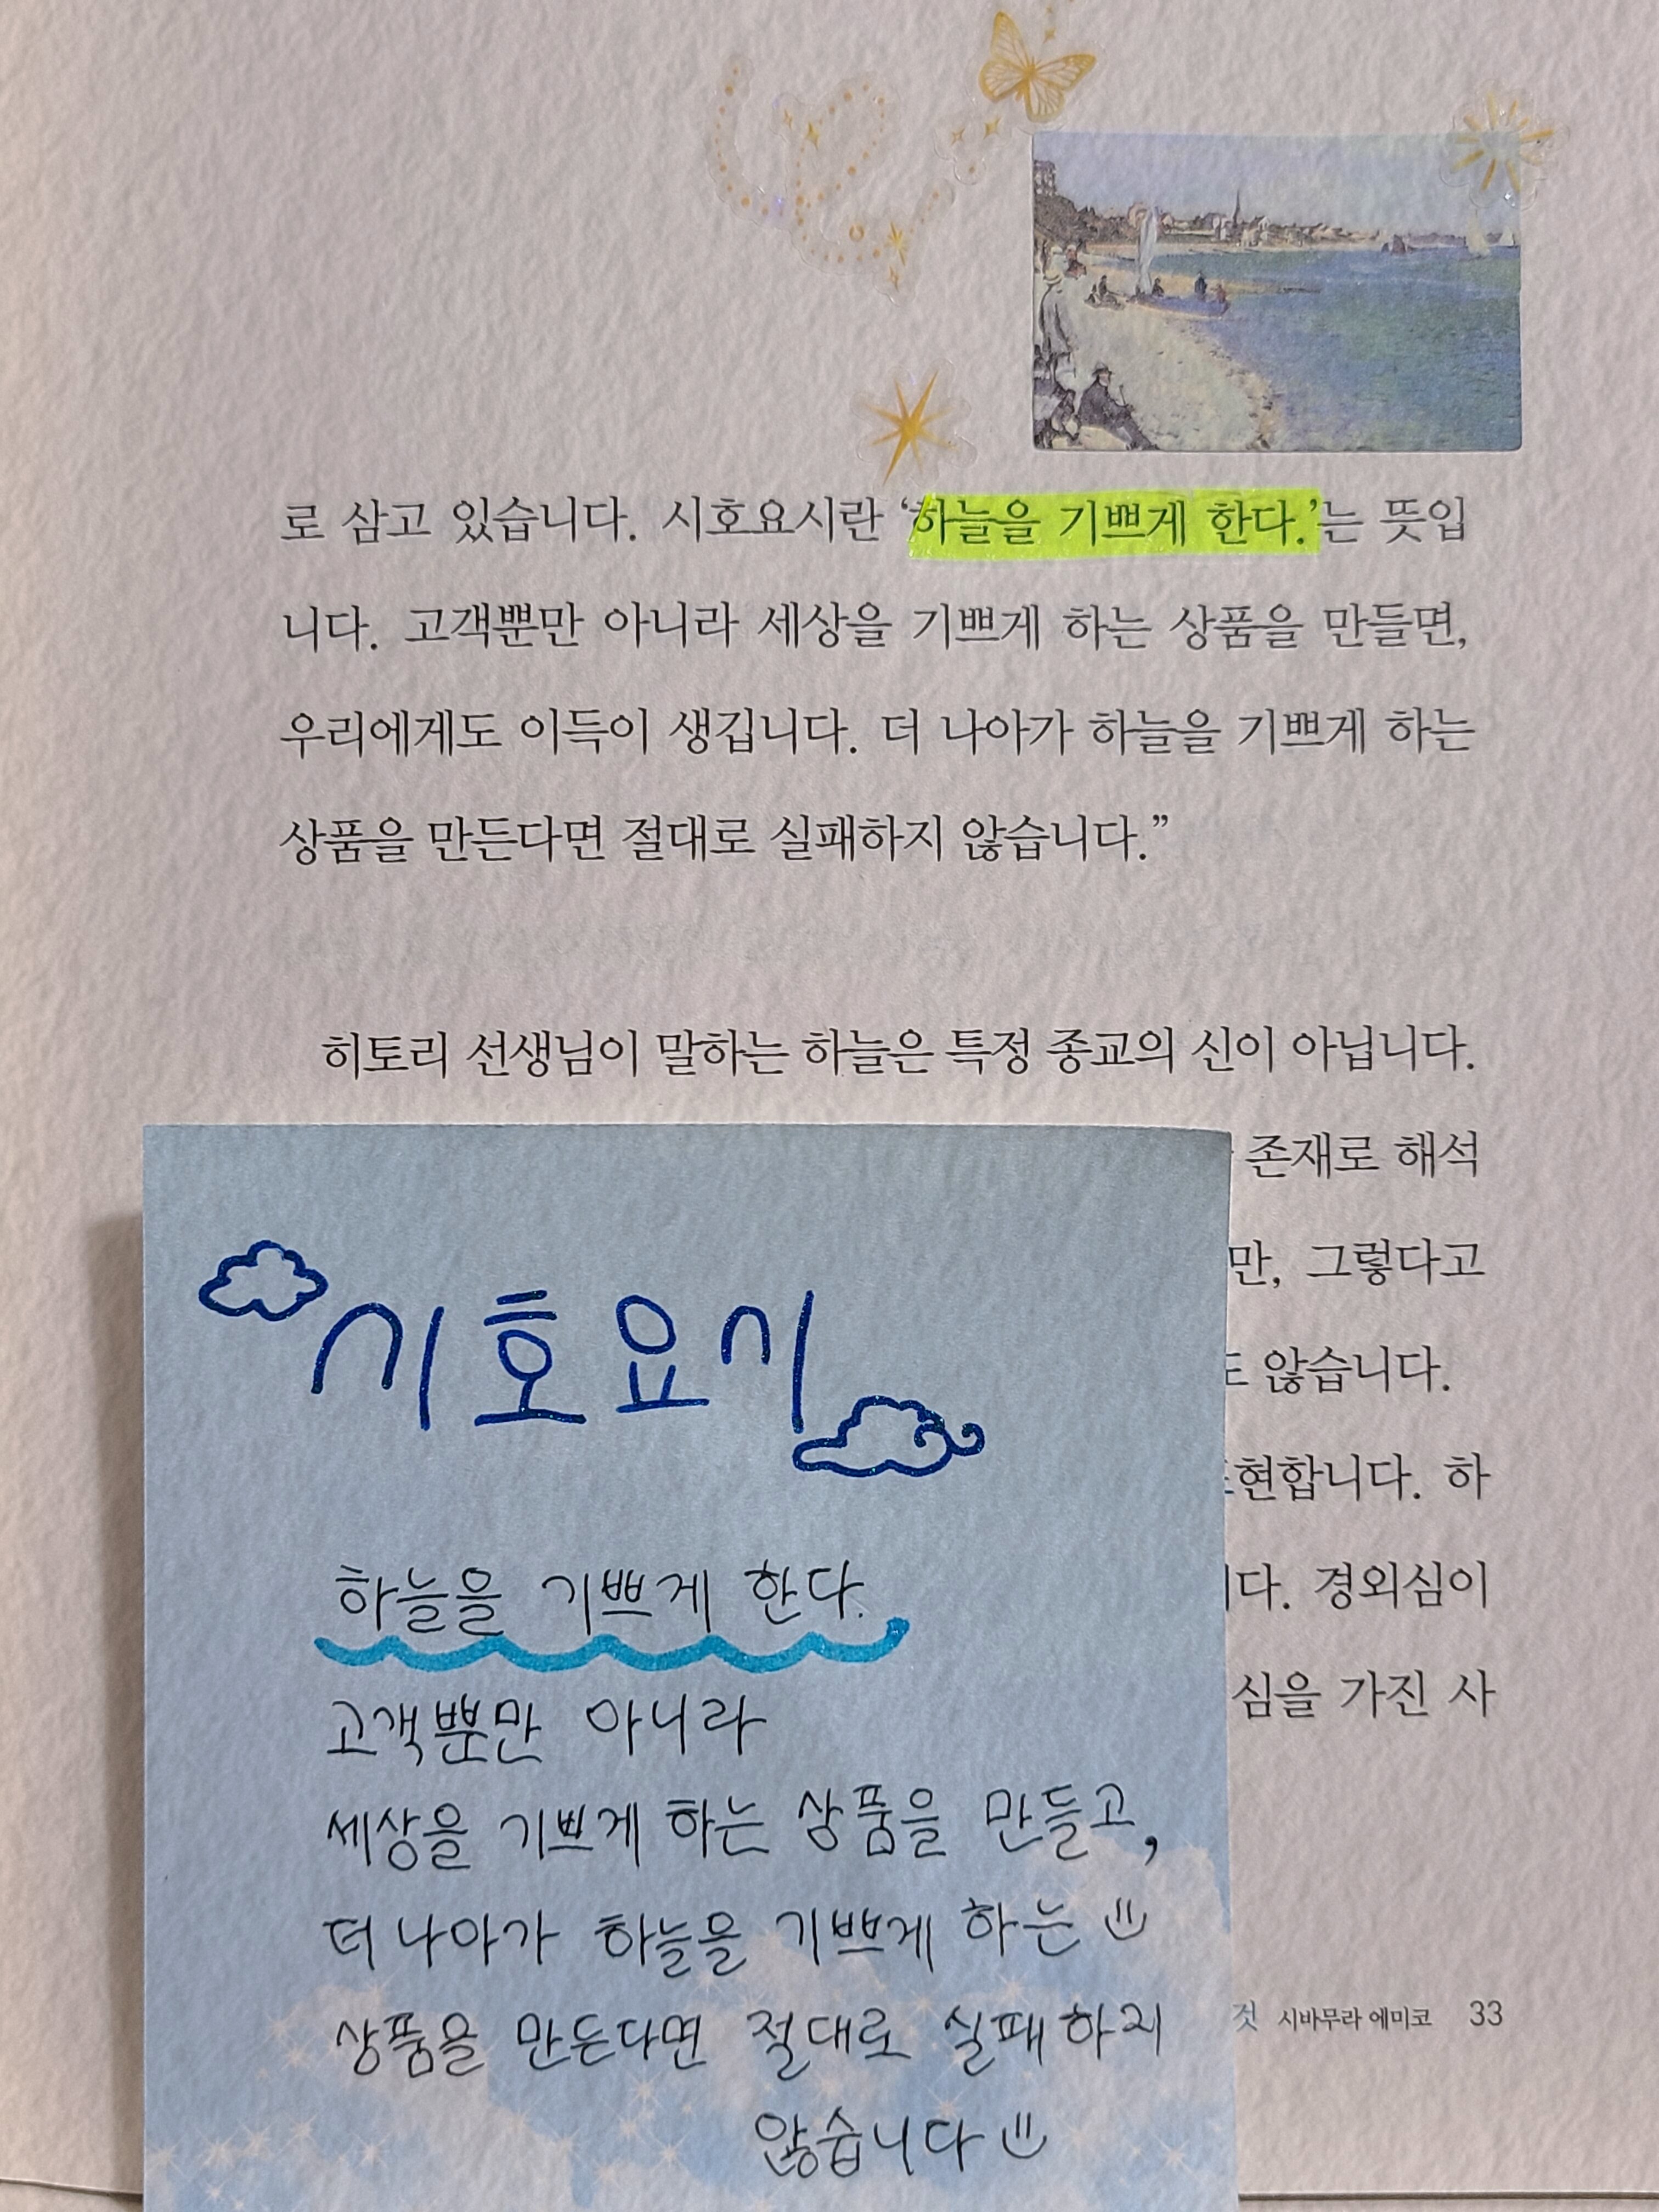 로 삼고 있습니다. 시호요시란 ‘하늘을 기쁘게 한다.’는 뜻입
니다. 고객뿐만 아니라 세상을 기쁘게 하는 상품을 만들면,
우리에게도 이득이 생깁니다. 더 나아가 하늘을 기쁘게 하는
상품을 만든다면 절대로 실패하지 않습니다.”
히토리 선생님이 말하는 하늘은 특정 종교의 신이 아닙니다.
존재로 해석
만, 그렇다고
않습니다.
현합니다. 하
다. 경외심이
심을 가진 사
것 시바무라 에미코 33
시호요시
하늘을 기쁘게 한다.
고객뿐만 아니라
세상을 기쁘게 하는 상품을 만들고,
더 나아가 하늘을 기쁘게 하는
상품을 만든다면 절대로 실패하지
않습니다